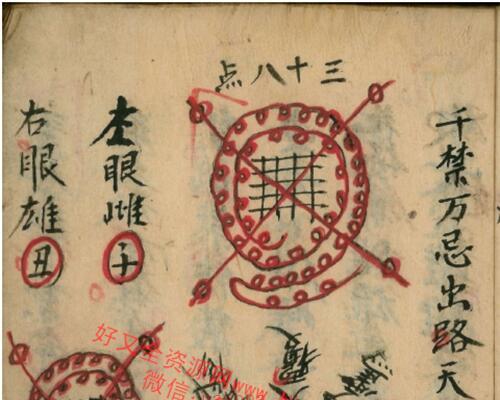 千禁万忌出路天
三十八点
左眼雌子
右眼雄丑
好又全资源网www.
微信